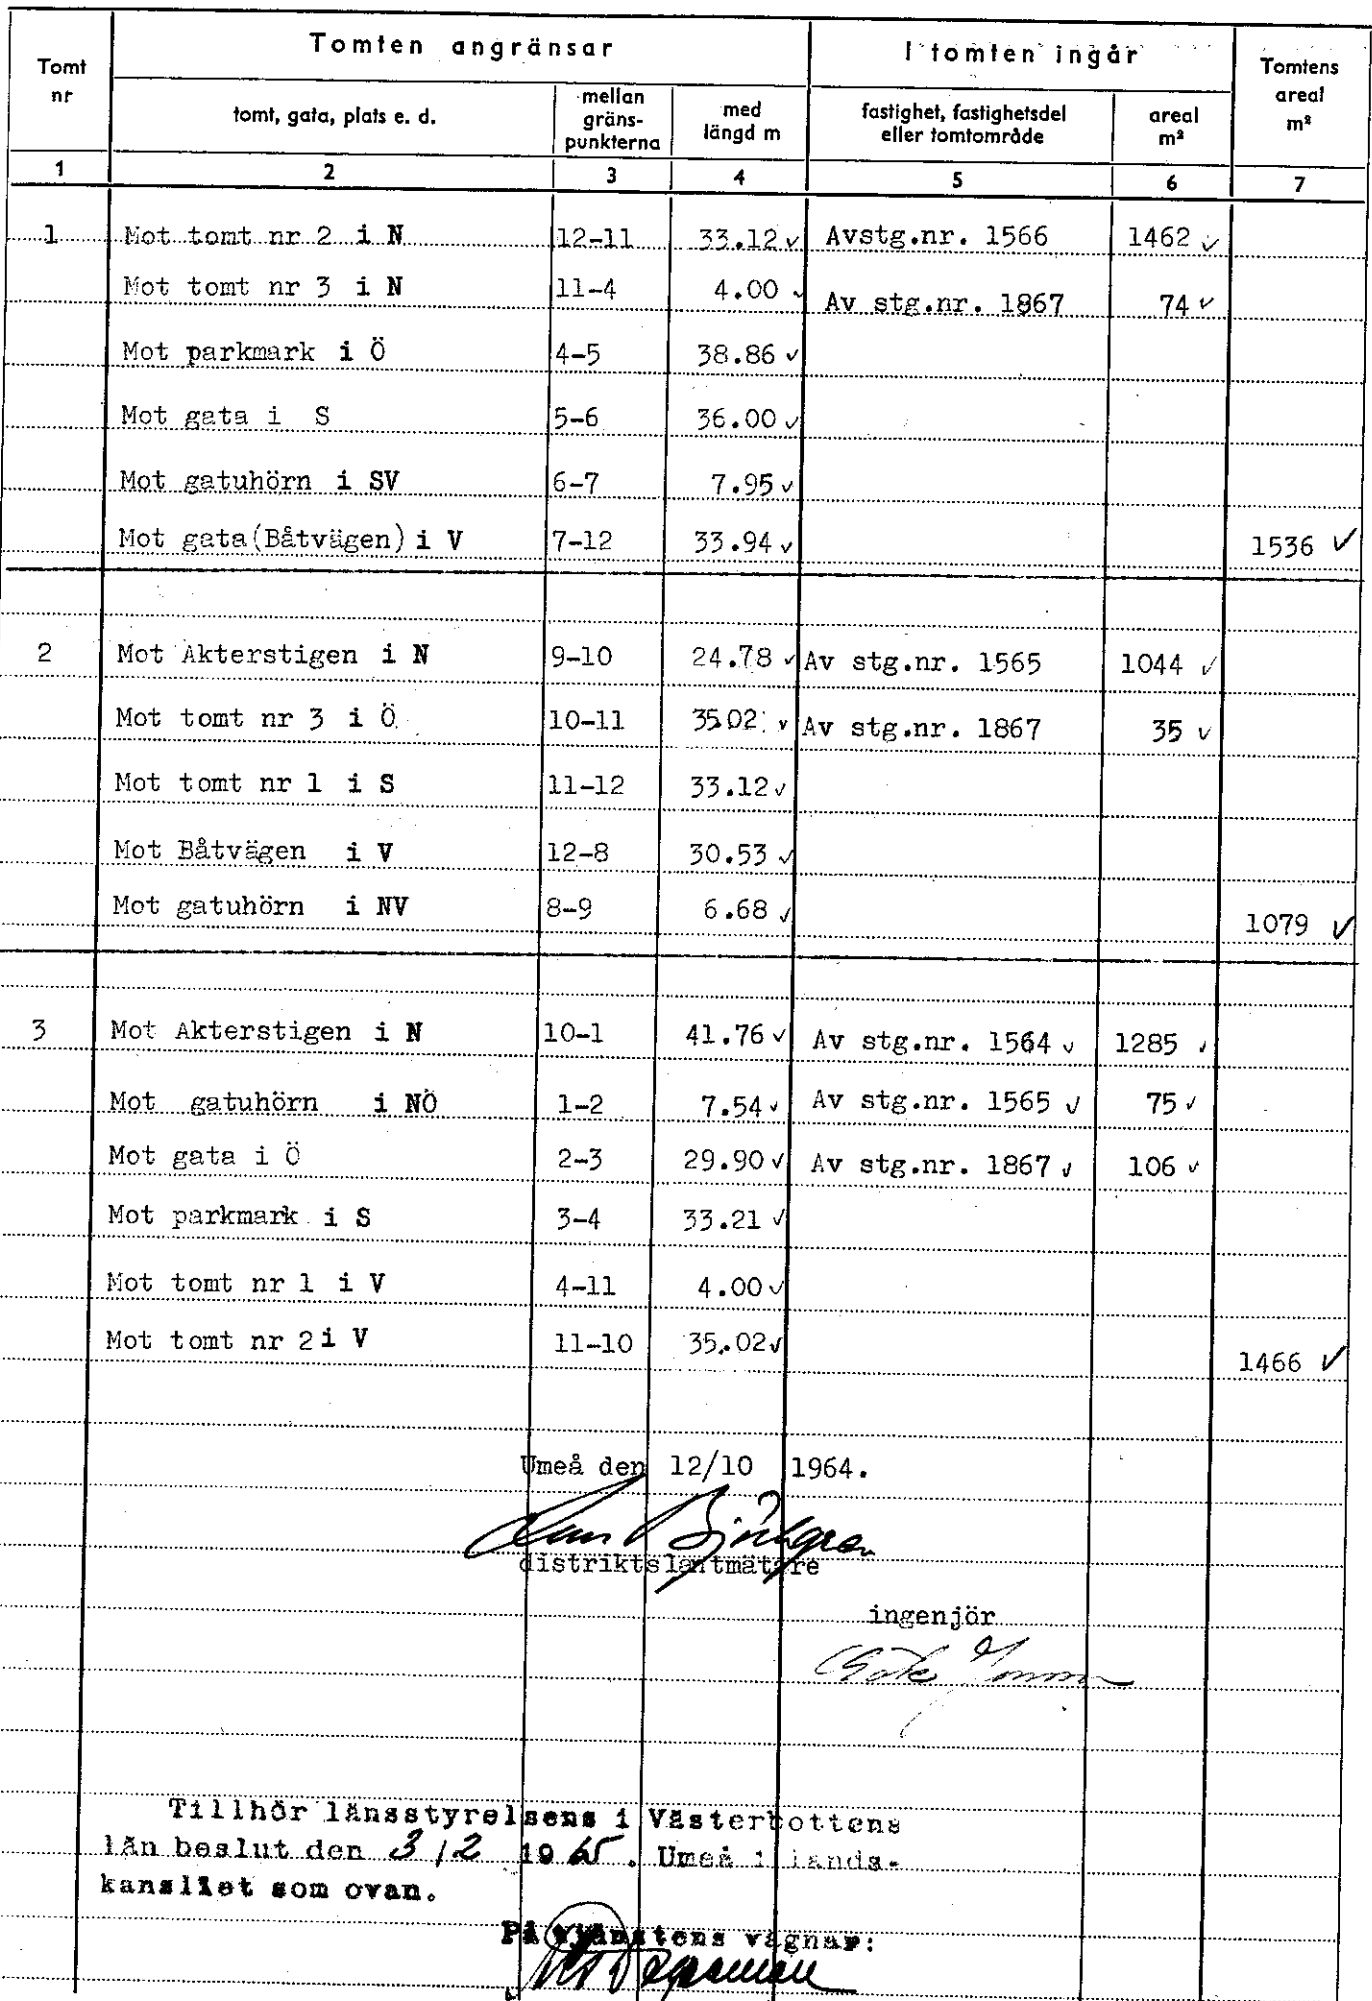 Tomt nr | Tomten angränsar | I tomten ingår | Tomtens areal m²
tomt, gata, plats e. d. | mellan gräns-punkterna | med längd m | fastighet, fastighetsdel eller tomtområde | areal m²
1 | 2 | 3 | 4 | 5 | 6 | 7
1 Mot tomt nr 2 i N 12-11 33.12 ✓ Avstg.nr. 1566 1462 ✓
Mot tomt nr 3 i N 11-4 4.00 ✓ Av stg.nr. 1867 74 ✓
Mot parkmark i Ö 4-5 38.86 ✓
Mot gata i S 5-6 36.00 ✓
Mot gatuhörn i SV 6-7 7.95 ✓
Mot gata(Båtvägen) i V 7-12 33.94 ✓ 1536 ✓
2 Mot Akterstigen i N 9-10 24.78 ✓ Av stg.nr. 1565 1044 ✓
Mot tomt nr 3 i Ö 10-11 35.02 ✓ Av stg.nr. 1867 35 ✓
Mot tomt nr 1 i S 11-12 33.12 ✓
Mot Båtvägen i V 12-8 30.53 ✓
Mot gatuhörn i NV 8-9 6.68 ✓ 1079 ✓
3 Mot Akterstigen i N 10-1 41.76 ✓ Av stg.nr. 1564 ✓ 1285 ✓
Mot gatuhörn i NÖ 1-2 7.54 ✓ Av stg.nr. 1565 ✓ 75 ✓
Mot gata i Ö 2-3 29.90 ✓ Av stg.nr. 1867 ✓ 106 ✓
Mot parkmark i S 3-4 33.21 ✓
Mot tomt nr 1 i V 4-11 4.00 ✓
Mot tomt nr 2 i V 11-10 35.02 ✓ 1466 ✓
Umeå den 12/10 1964.
distriktslantmätare
ingenjör
Tillhör länsstyrelsens i Västerbottens
län beslut den 3/2 1965. Umeå i lands-
kansliet som ovan.
På tjänstens vägnar: